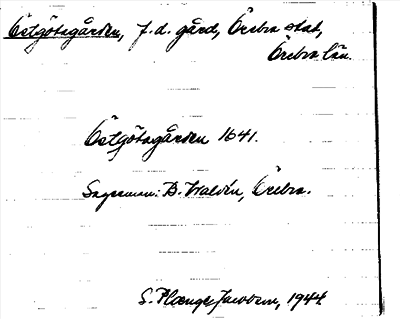 Östgötagården, f.d. gård, Örebro stad,
Örebro län.
Östgötagården 1641.
Sagesman: B. Waldén, Örebro.
S. Plænge Jacobson, 1944